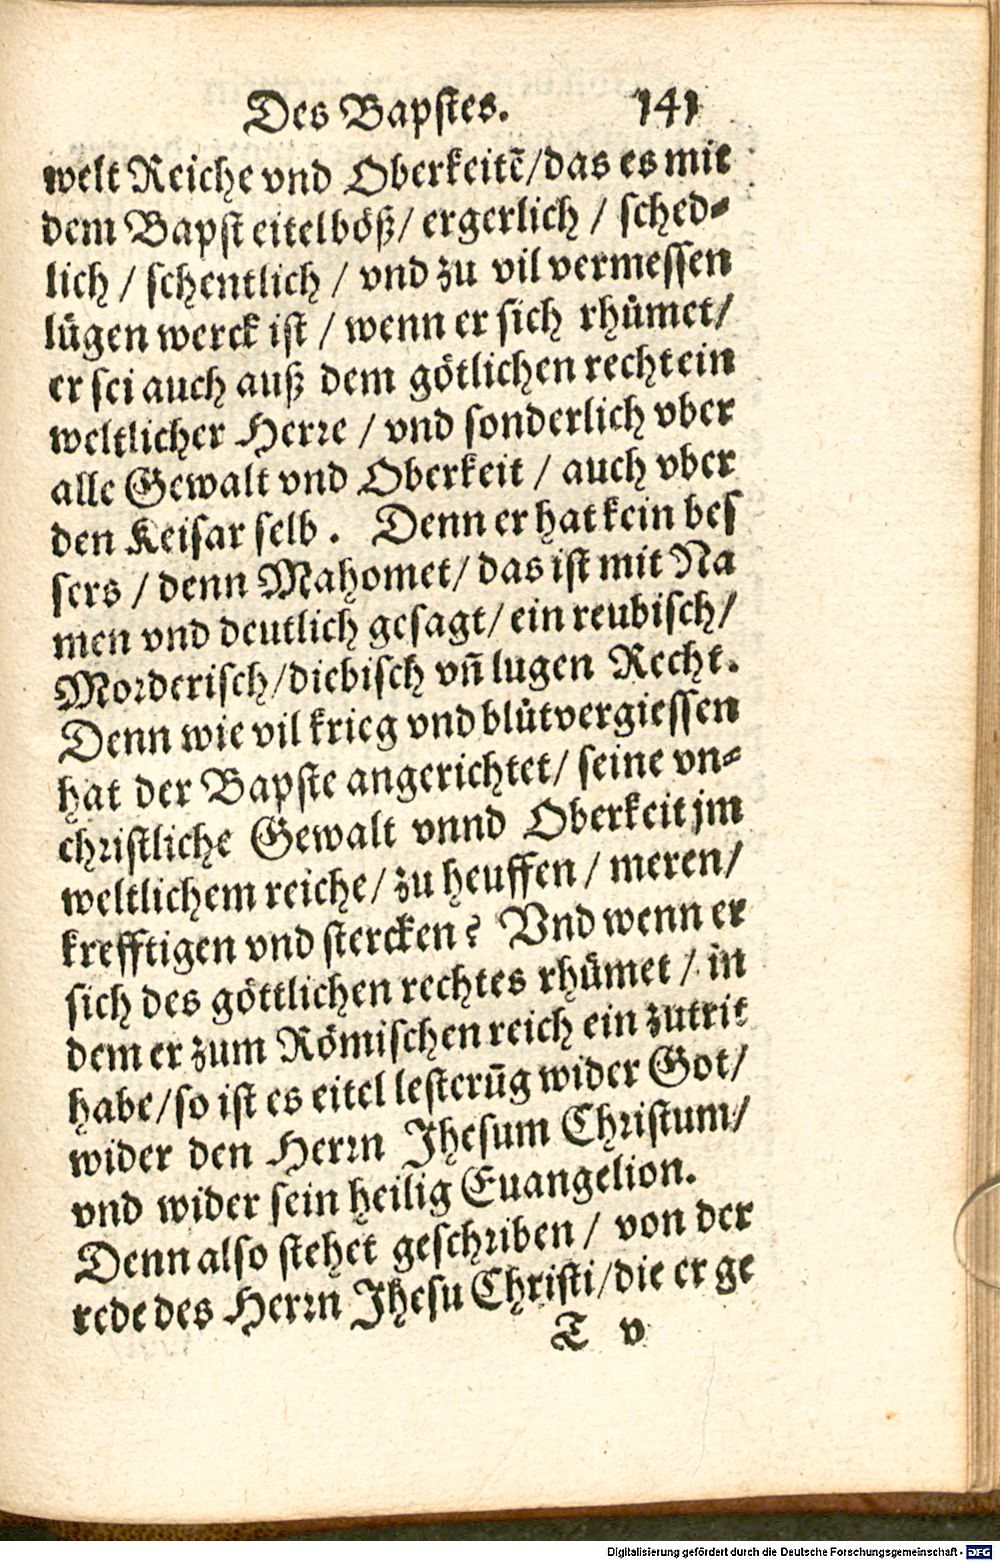 Des Bapstes. 141
welt Reiche vnd Oberkeitē/das es mit
dem Bapst eitelböß/ ergerlich / sched⸗
lich / schentlich / vnd zu vil vermessen
lügen werck ist / wenn er sich rhümet/
er sei auch auß dem götlichen recht ein
weltlicher Herre / vnd sonderlich vber
alle Gewalt vnd Oberkeit / auch vber
den Keisar selb . Denn er hat kein bes
sers / denn Mahomet/ das ist mit Na
men vnd deutlich gesagt/ ein reubisch/
Morderisch/diebisch vn̄ lugen Recht.
Denn wie vil krieg vnd blůtvergiessen
hat der Bapste angerichtet/ seine vn⸗
christliche Gewalt vnnd Oberkeit jm
weltlichem reiche/ zu heuffen / meren/
krefftigen vnd stercken? Vnd wenn er
sich des göttlichen rechtes rhümet / in
dem er zum Römischen reich ein zutrit
habe/so ist es eitel lesterūg wider Got/
wider den Herrn Jhesum Christum/
vnd wider sein heilig Euangelion.
Denn also stehet geschriben / von der
rede des Herrn Jhesu Christi/die er ge
T v
Digitalisierung gefördert durch die Deutsche Forschungsgemeinschaft - DFG